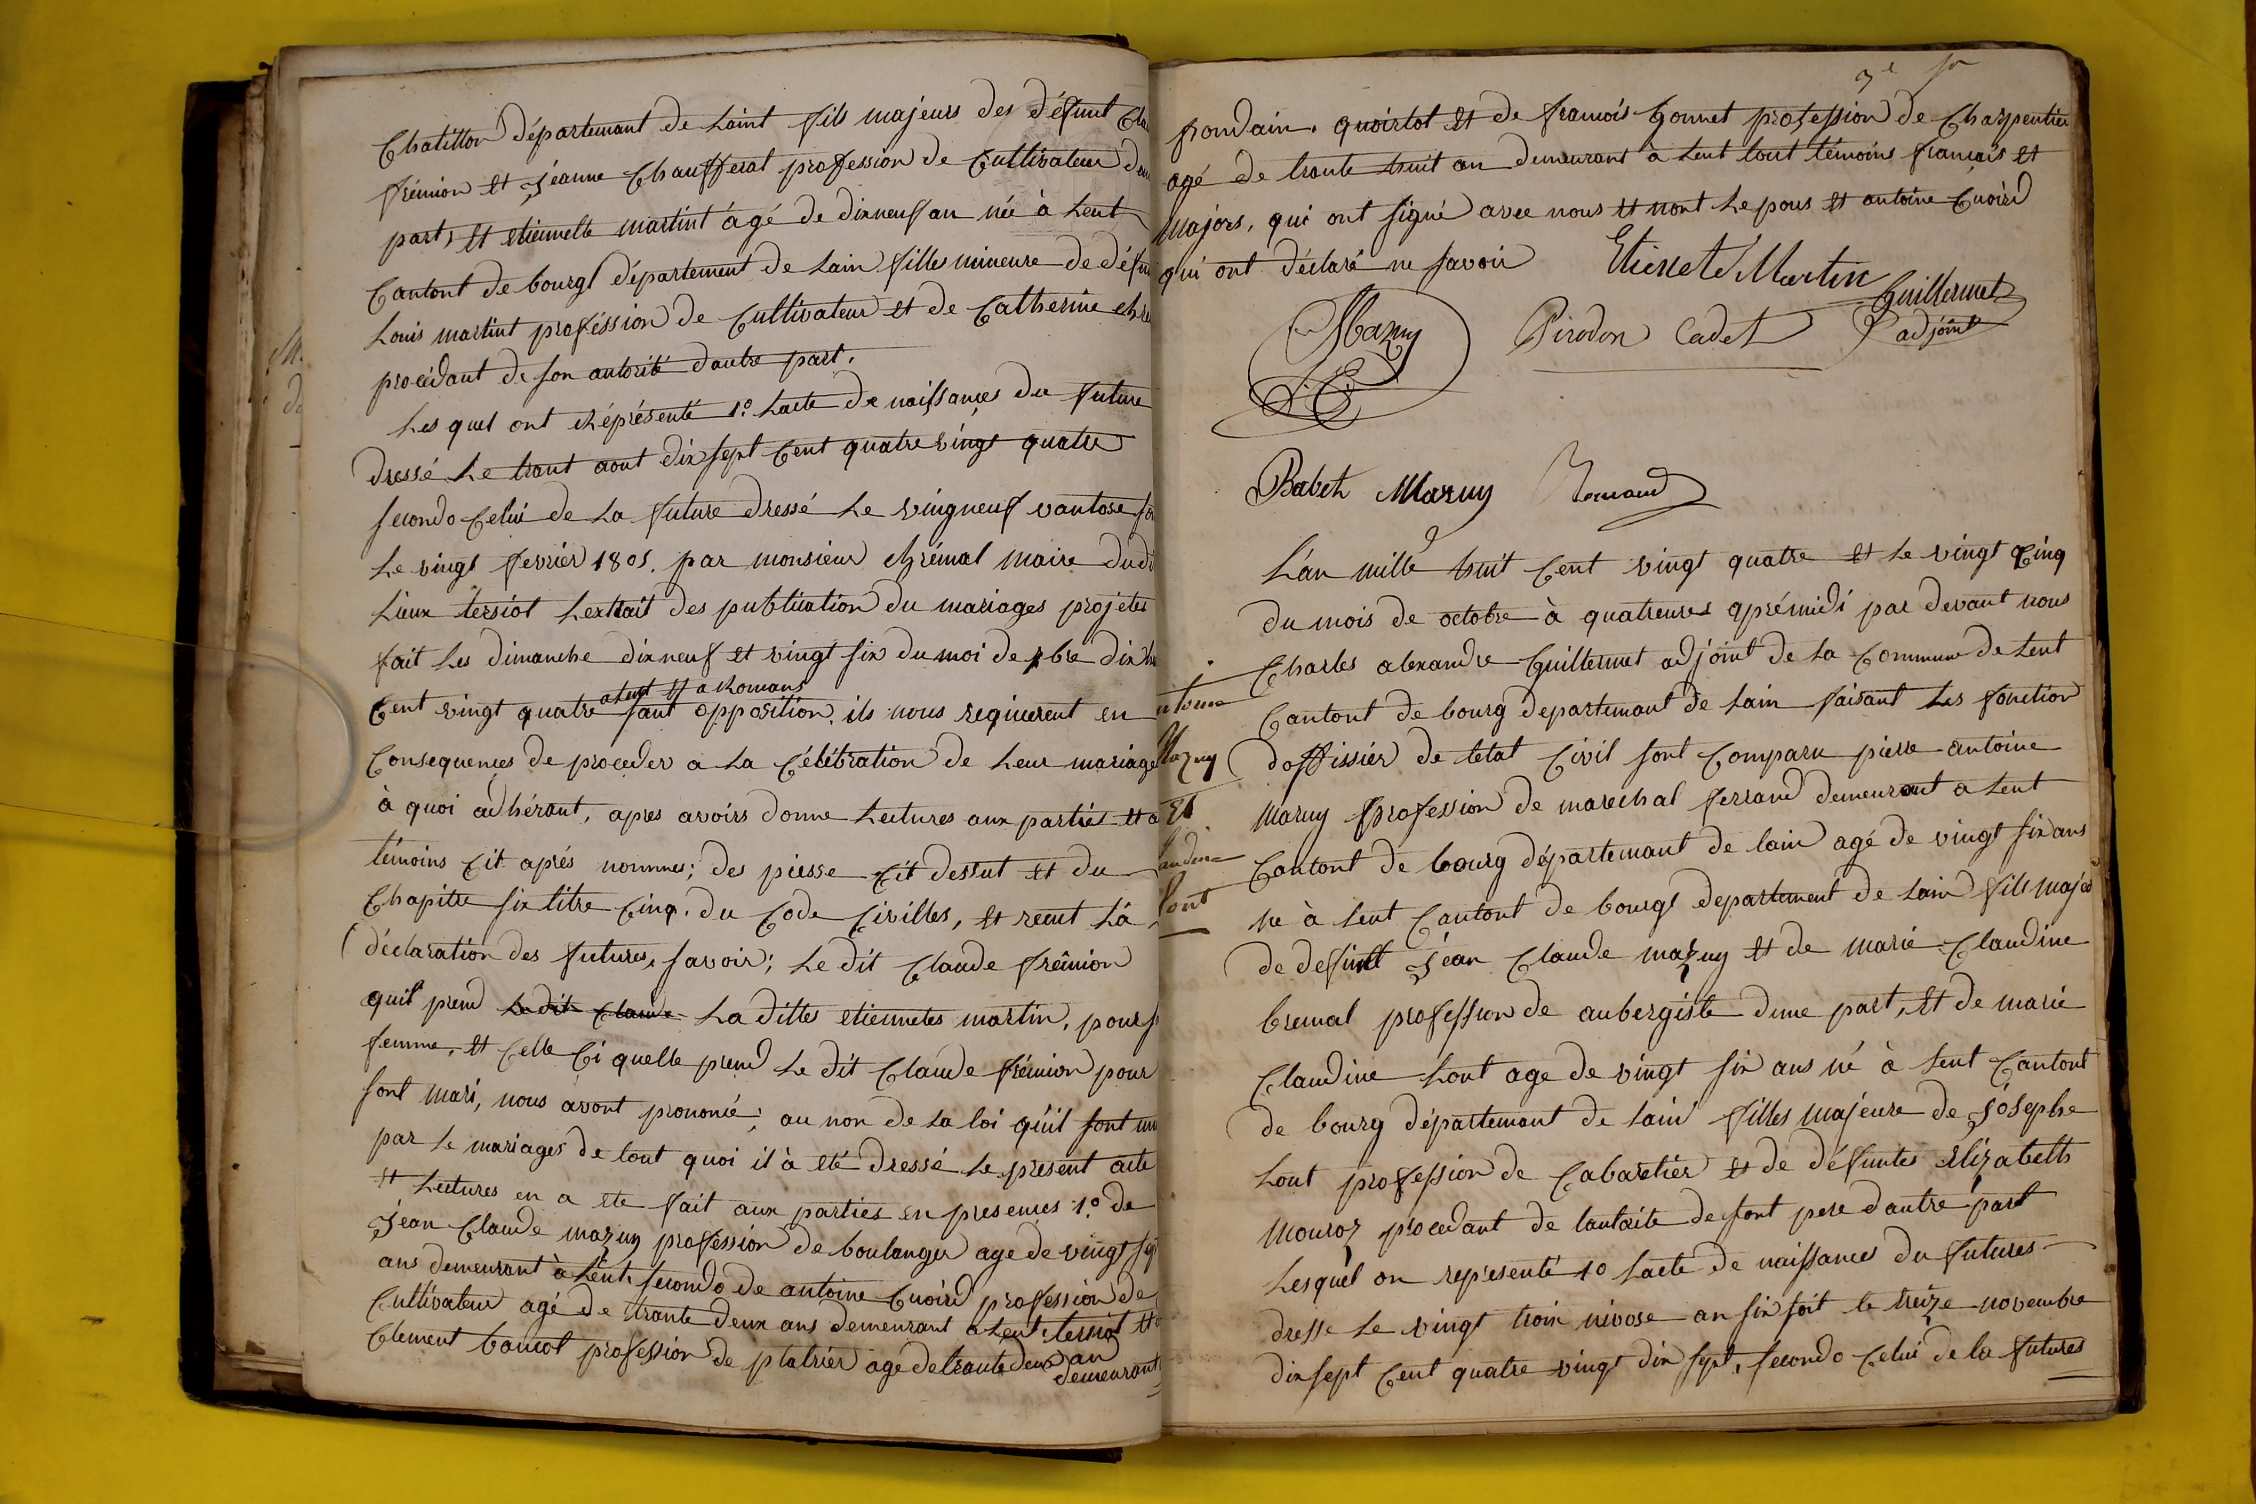 Chatillon département de Laint fils majeurs des défunt
frémion et Jéanne Chaufferat profession de Cultivateur
part, et etiennette martint âgé de dixneuf an née à Lent
Cantont de bourgt département de Lain filles mineure de
Louis martint proféssion de Cultivateur et de Catherine
procédant de son autorité dautre part.
Les quel ont réprésenté 1.o Lacte de naissances du future
dressé Le trant aout dix sept Cent quatre vingt quatre
secondo Celui de La future dressé Le vingneuf vantose
Le vingt fevrièr 1805. par monsieur chrémal maire
Lieux tersiot Lextrait des publication du mariages projetes
fait Les dimanche dixneuf et vingt six du moi de 7bre
a Lent et a Romans
Cent vingt quatre sant opposition. ils nous requierent en
Consequences de proceder a La Célébration de Leur mariage
à quoi adhérant, apres avoirs donne Lectures aux partiés et
témoins Cit aprés nommes; des piesse Cit dessut et du
Chapitre six titre Cinq. du Code Civilles, et recut La
déclaration des futures, savoir; Le dit Claude fréminon
quil prend Le dit Claude La dittes etiennetes martin, pour
femme, et Celle Ci quelle prend Le dit Claude frémion pour
sont mari, nous avont prononcé; au non de La loi quil sont
par Le mariages de tout quoi il à eté dressé Le present acte
et Lectures en a ete fait aux parties en presences 1.o de
Jean Claude mazuy proféssion de boulanger age de vingt
ans demeurant à Lent. secondo de antoine Cuoird profession de
Cultivateur agé de trante deux ans demeurant a Lent. tersiot
Clement bancot profession de platrièr agé de trante deux an
demeurant
frondain. quoirtot et de framois Gonnet profession de Charpentier
agé de trante huit an demeurant à Lent tout témoins francais et
Majors, qui ont signé avec nous et nont Le pous et antoine Cuoird
qui ont déclaré ne savoir
Etienete Martin
Guillermet
adjoint
Mazuy
Pirodon Cadet
Babet Mazuy
Renaud
Lan mille huit Cent vingt quatre et Le vingt Cinq
du mois de octobre à quatreures aprémidi par devant nous
Charles alexandre Guillermet adjoint de La Commune de Lent
Cantont de bourg departemant de Lain faisant Les fonction
doffissiér de letat Civil sont Comparu pierre antoine
Mazuy profession de marechal ferrand demeurant a Lent
Cantont de bourg département de lain agé de vingt six ans
ne à Lent Cantont de bourgt departement de Lain fils majeu
de defunt Jéan Claude mazuy et de marie Claudine
bremal profession de aubergiste dune part, et de marie
Claudine Lont age de vingt six ans né à Lent Cantont
de bourg départemant de Lain filles majeure de Jôsephe
Lont profession de Cabaretiér et de défuntes élizabeth
Mouroz procedant de lautoite de sont pere dautre part
Lesquel on représenté 1o Lacte de naissances du futures
dresse Le vingt troix nivose an six soit le treize novembre
dixsept Cent quatre vingt dix sept, secondo Celui de la futures
Mazuy
et
Lont